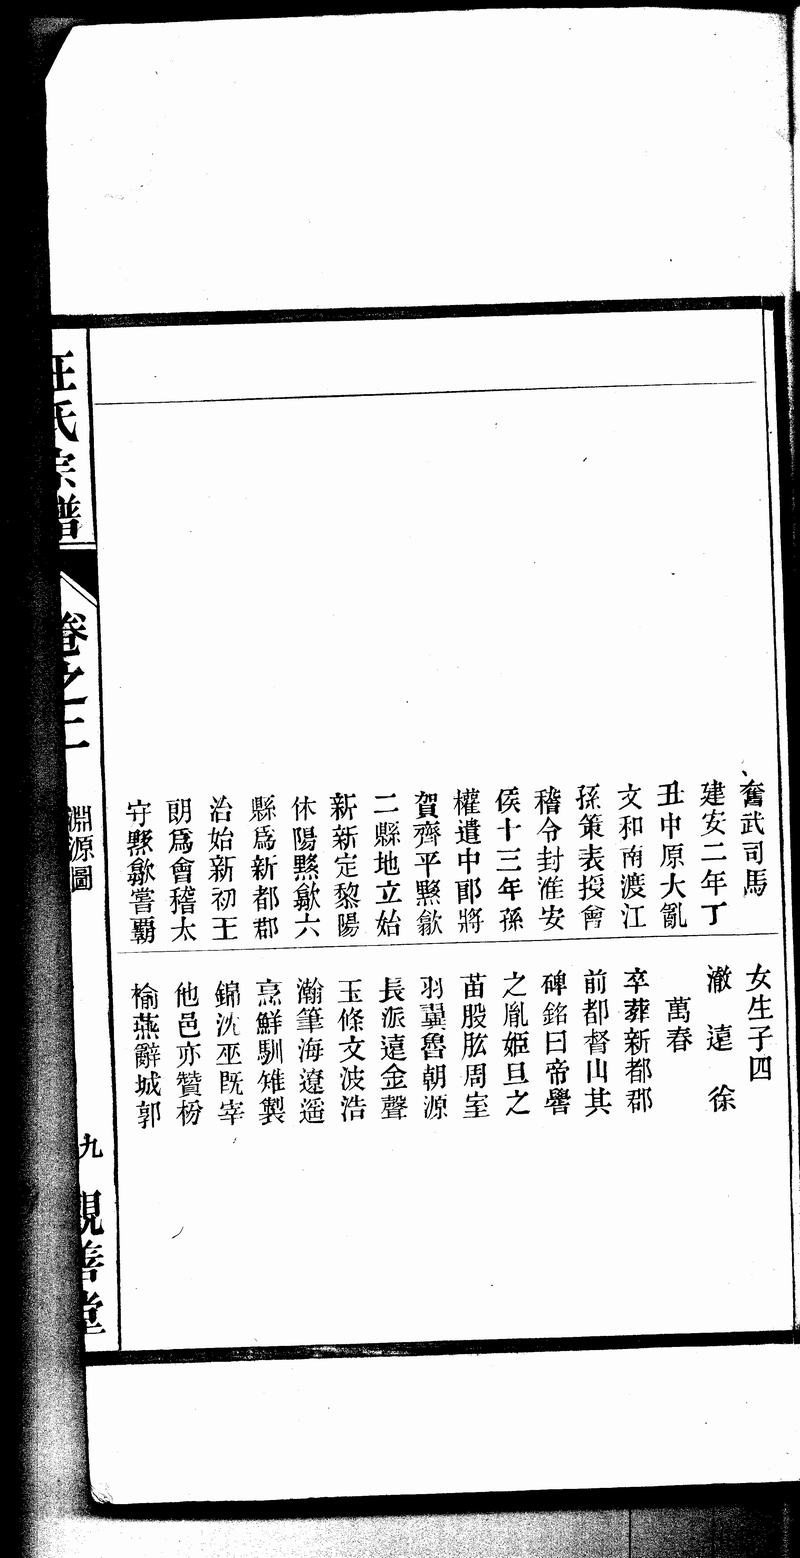 奮武司馬
建安二年丁
丑中原大亂
文和南渡江
孫策表授會
稽令封淮安
侯十三年孫
權遣中郎將
賀齊平黟歙
二縣地立始
新新定黎陽
休陽黟歙六
縣爲新都郡
治始新初王
朗爲會稽太
守黟歙嘗覇
女生子四
澈 遠 徐
萬春
卒葬新都郡
前都督山其
碑銘曰帝嚳
之胤姬旦之
苗股肱周室
羽翼魯朝源
長派遠金聲
玉條文波浩
瀚筆海遼遥
烹鮮馴雉製
錦沈巫既宰
他邑亦贊枌
榆燕辭城郭
汪氏宗譜
卷之二
淵源圖
九
親善堂